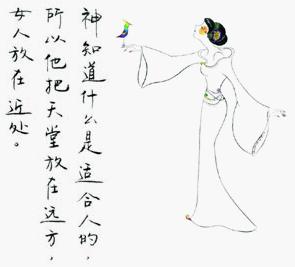 神知道什么是适合人的，
所以他把天堂放在远方，
女人放在近处。